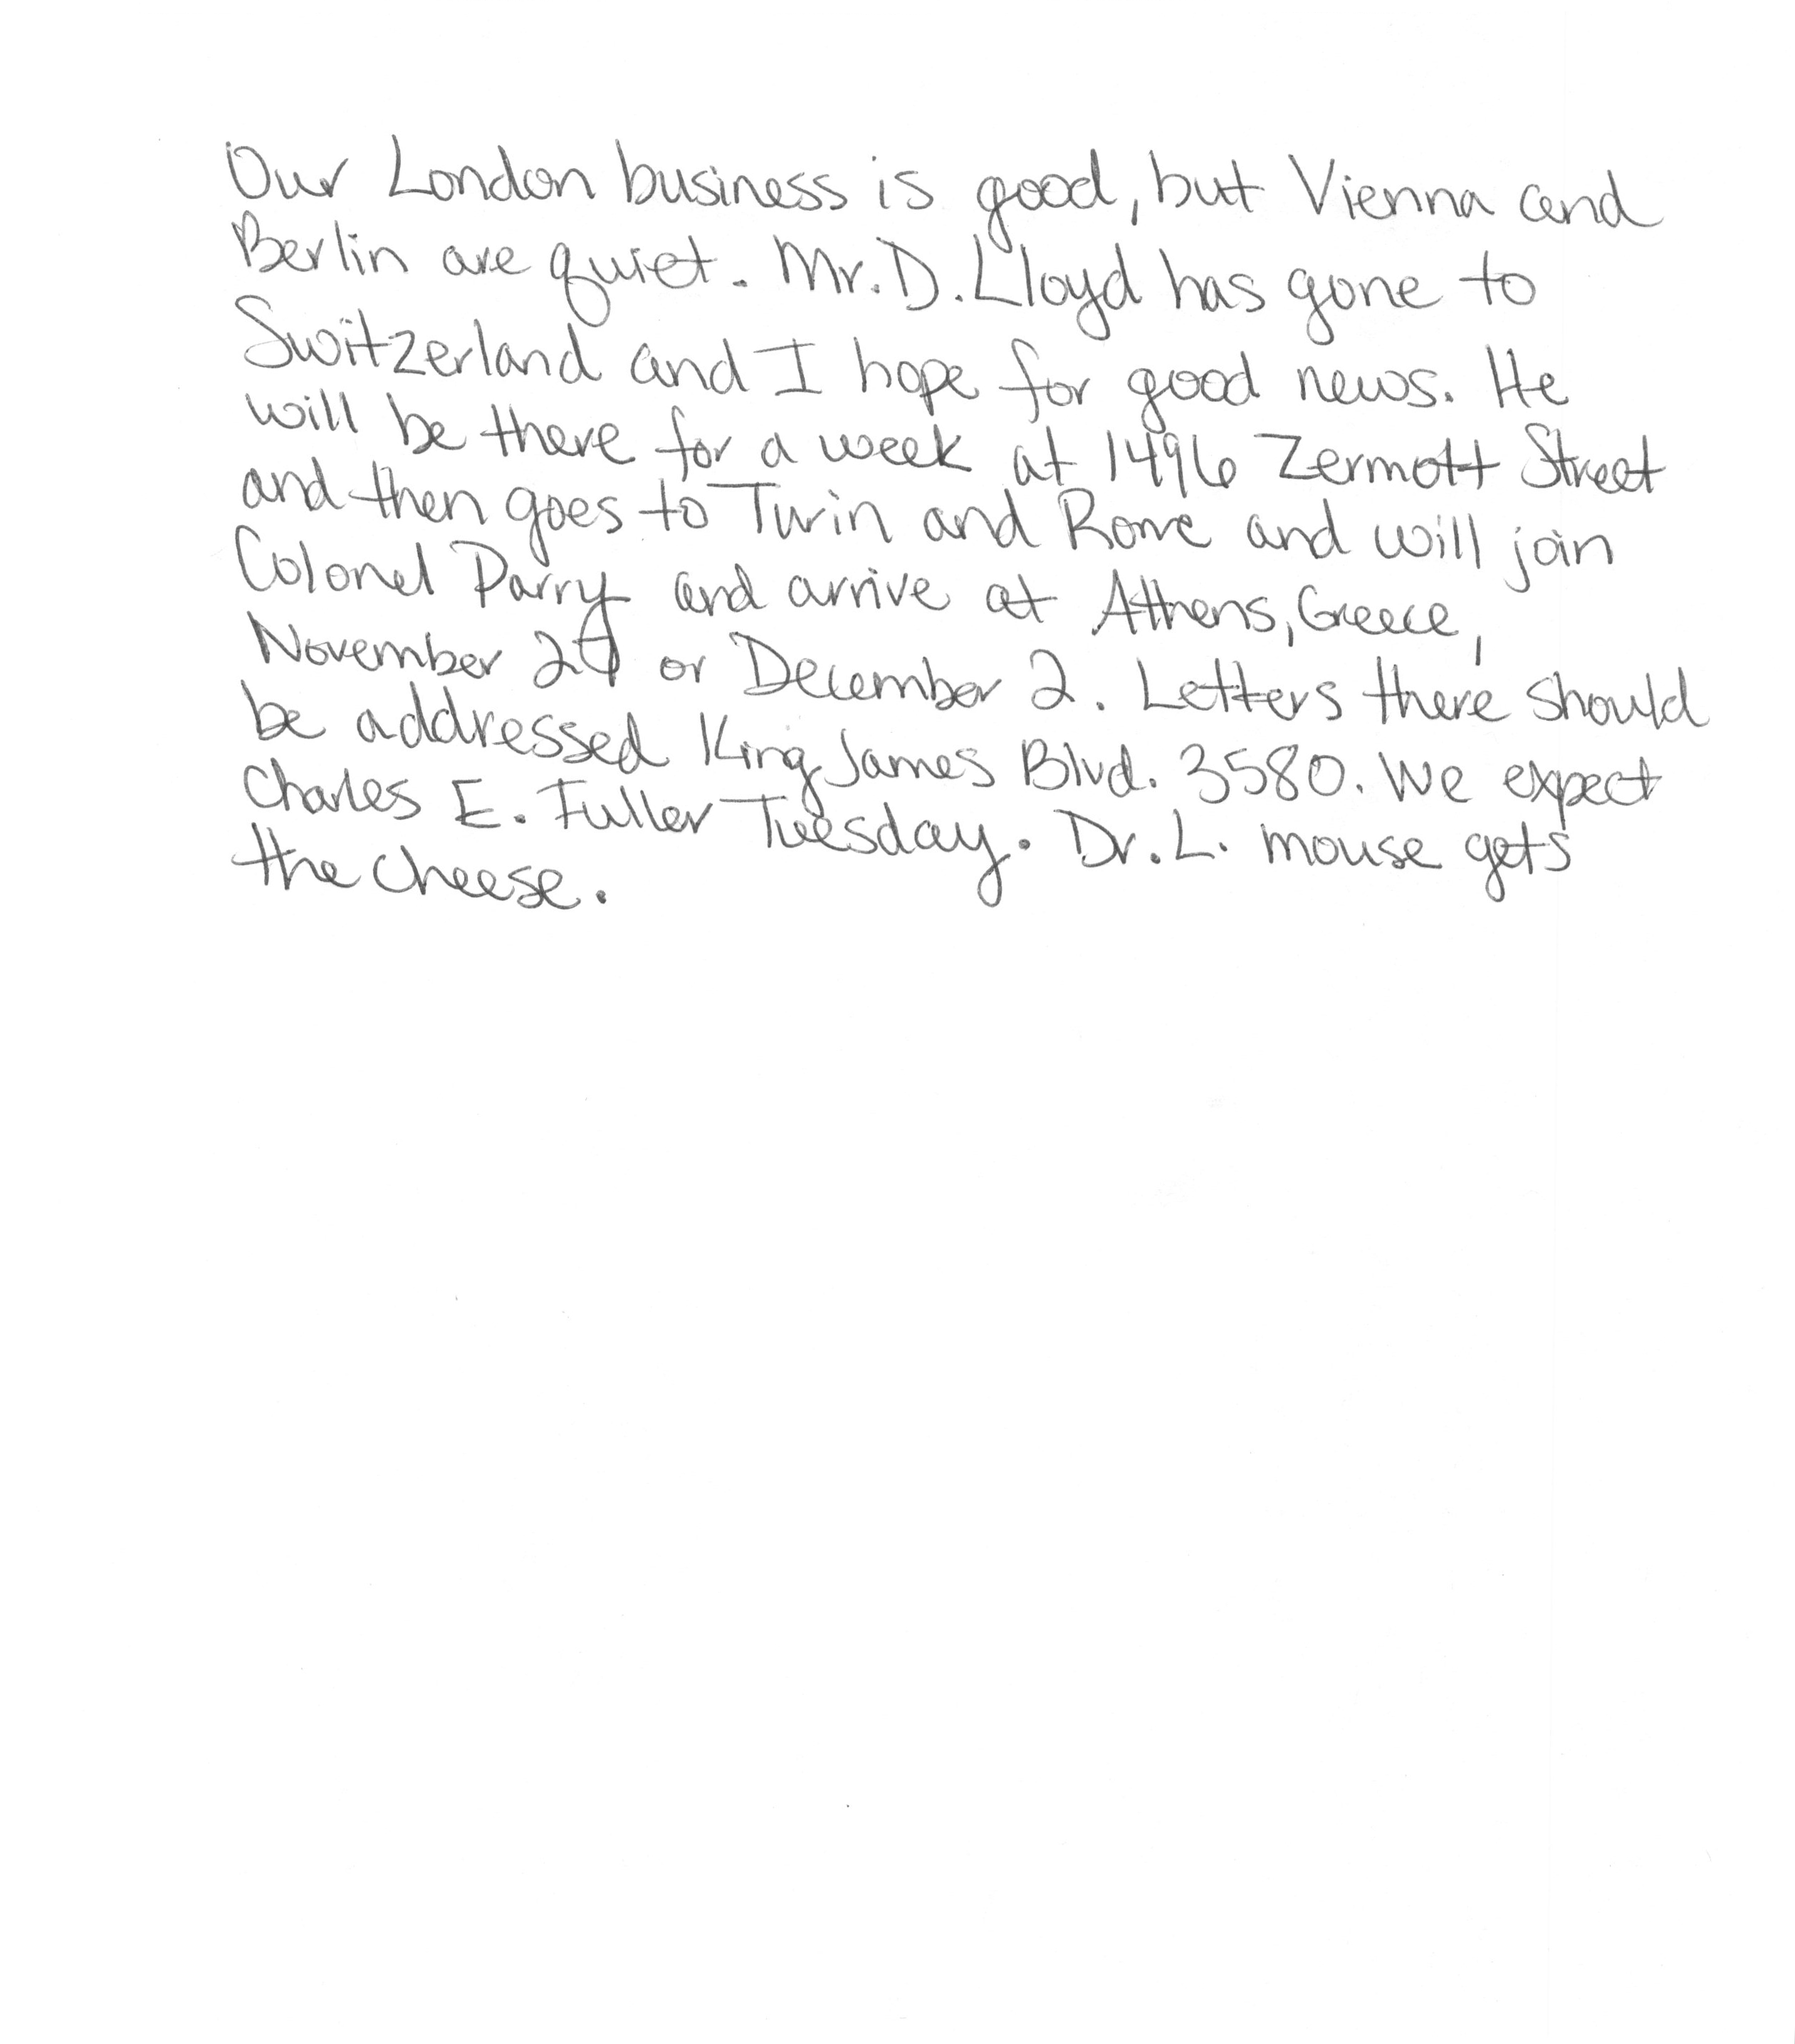 Our London business is good, but Vienna and
Berlin are quiet. Mr. D. Lloyd has gone to
Switzerland and I hope for good news. He
will be there for a week at 1496 Zermott Street
and then goes to Turin and Rome and will join
Colonel Parry and arrive at Athens, Greece,
November or December 2. Letters there should
be addressed King James Blvd. 3580. We expect
Charles E. Fuller Tuesday. Dr. L. mouse gets
the cheese.